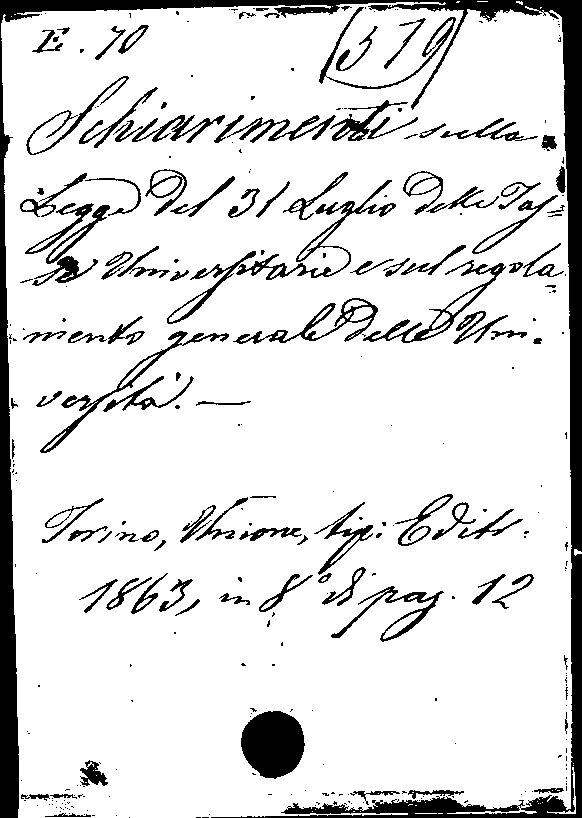 E. 70 (319)
Schiarimenti sulla
Legge del 31 Luglio delle Tas=
se Universitarie e sul regola=
mento generale delle Uni-
versità. —
Torino, Unione, tip: Editr.
1863, in 8° di pag. 12